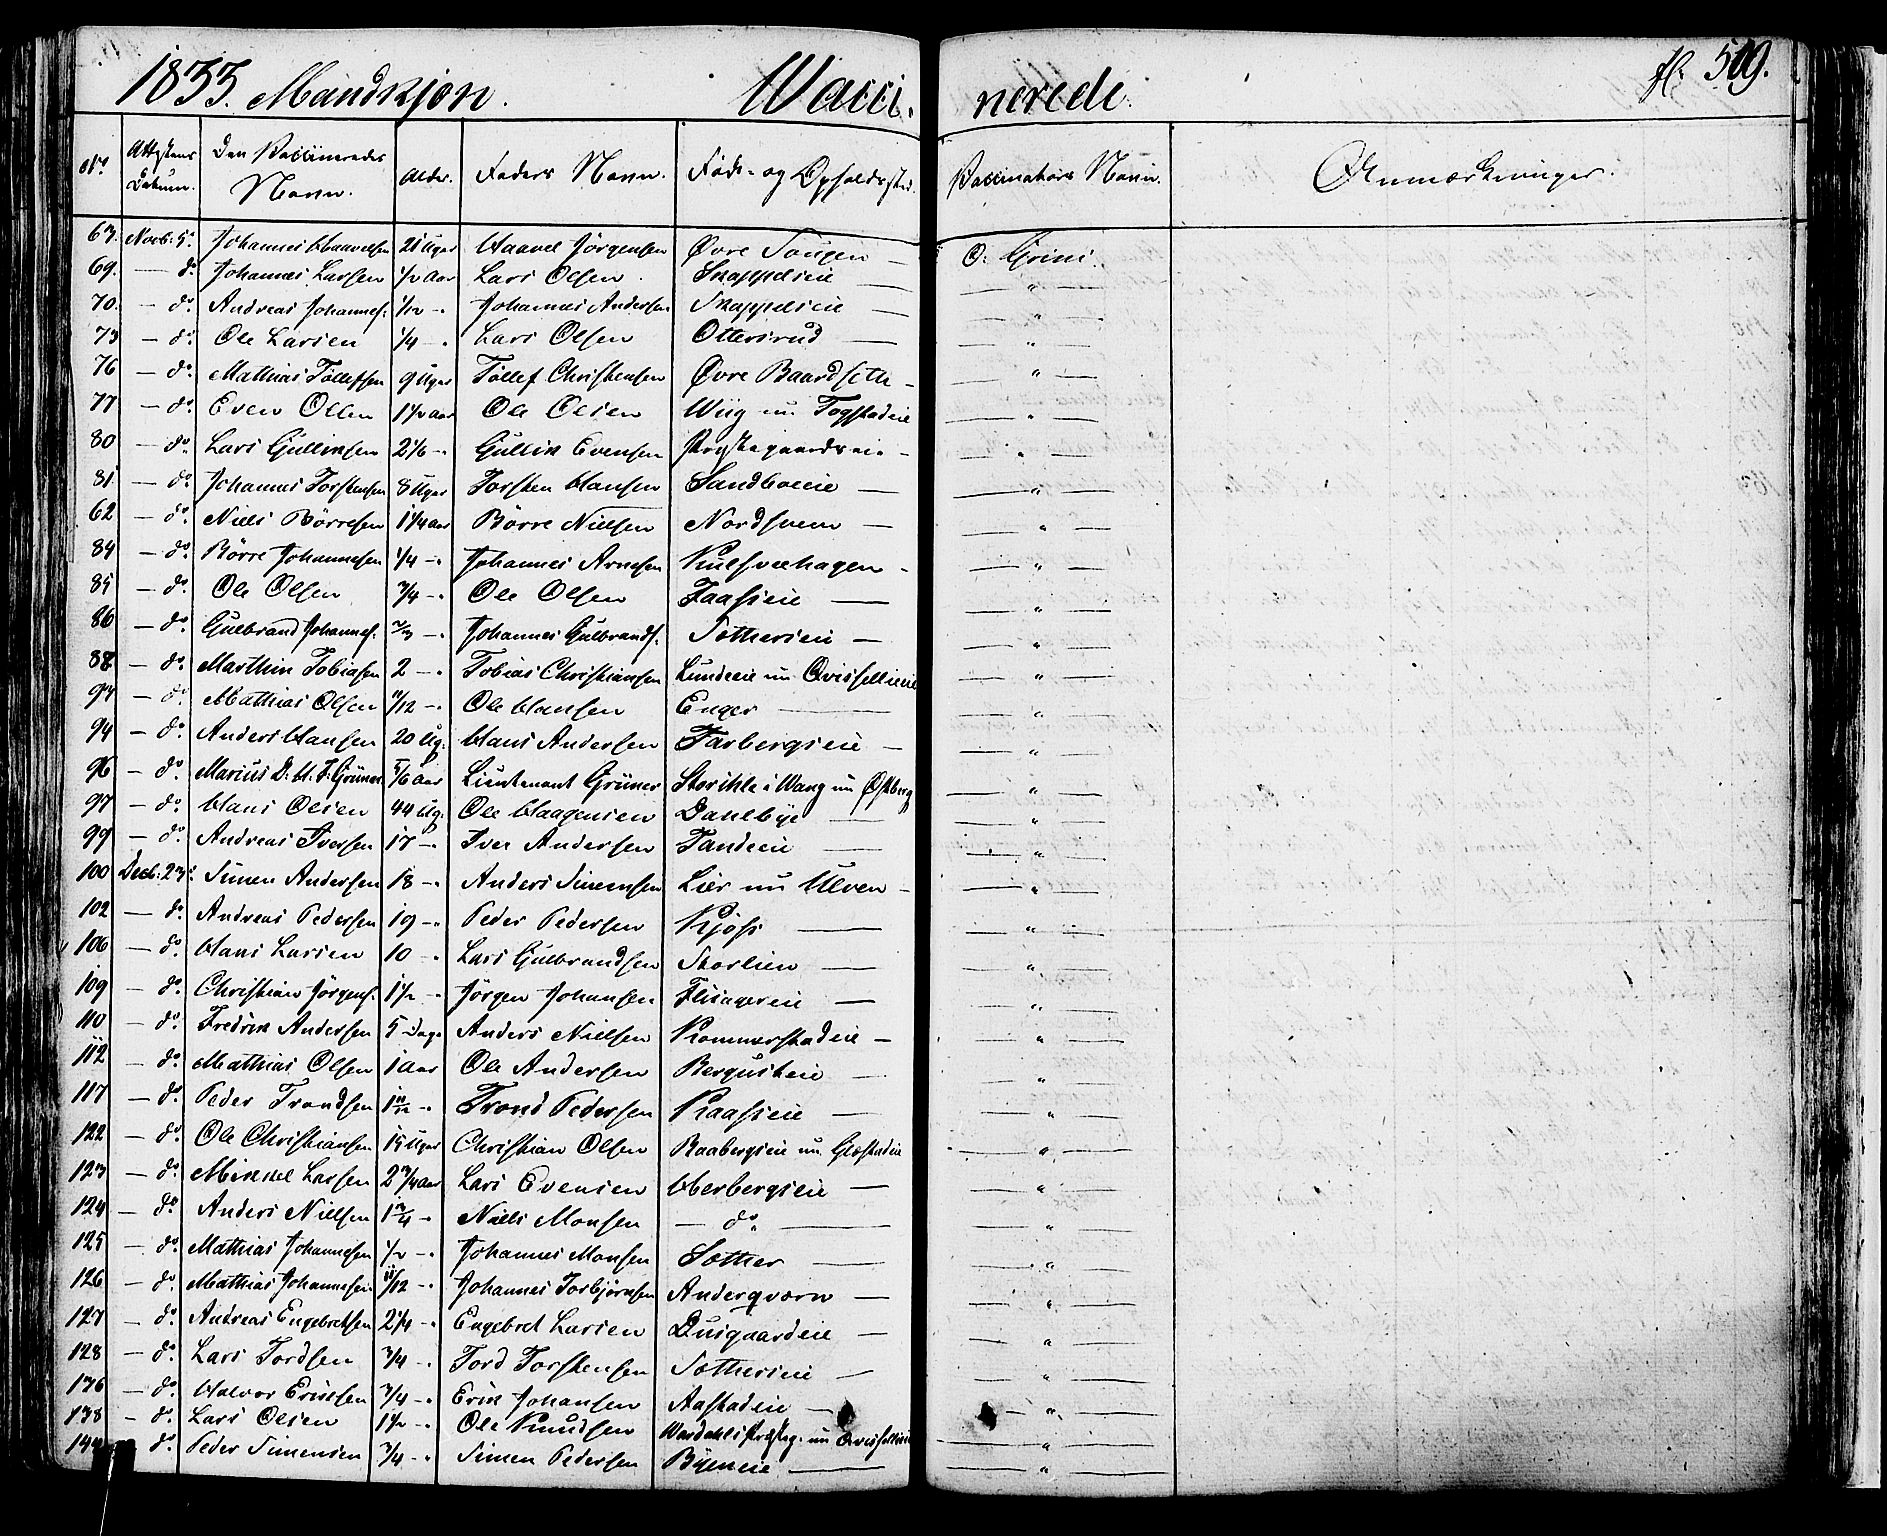 1833. Mandkjøn. Wacci nerede fl: 509.
No. Attestens Datum. Den Vaccineredes Navn. Alder. Faders Navn. Føde- og Opholdssted. Vaccinatørs Navn. Anmærkninger.
67. Novb: 5. Johannes Haavelsen 21 Uger Haavel Jørgensen Øvre Saugen — O: Grini.
69. — do. Johannes Larsen 1/2 Aar Lars Olsen Snappeleie — — " —
70. — do. Andreas Johannes. 1/12 — Johannes Andersen Snappeleie — — " —
73 — do. Ole Larsen 1/4 — Lars Olsen Ottersrud — — " —
76 — do. Mathias Tollefsen 9 Uger Tollef Christensen Øvre Baardseth — — " —
77 — do. Even Olsen 1 1/2 aar Ole Olsen Wiig nu Togstadeie — " —
80 — do. Lars Gulliksen 2 1/6 — Gullik Evensen Præstegaardseie — — " —
81. — do. Johannes Torstensen 8 Uger Torsten Hansen Sandboeeie — — " —
62 — do. Niels Børresen 1 1/4 aar Børre Nielsen Nordsveen — — " —
84 — do. Børre Johannesen 1/4 — Johannes Arnesen Kulsveehagen — — " —
85 — do. Ole Olsen 3/4 — Ole Olsen Faaseie — — " —
86 — do. Gulbrand Johannes. 2/3 — Johannes Gulbrands. Sothereie — — " —
88 — do. Marthin Tobiasen 2 — Tobias Christiansen Lundeeie nu Qvisselleie — " —
93 — do. Mathias Olsen 11/12 — Ole Hansen Enger — — " —
94 — do. Anders Hansen 20 Ug. Hans Andersen Farbergseie — — " —
96 — do. Marius D: H: F: Grüner 5/6 aar Lieutenant Grüner Storihle i Wang nu Østberg — " —
97 — do. Hans Olsen 44 Ug. Ole Haagensen Danebye — — " —
99 — do. Andreas Iversen 17 — Iver Andersen Tandeeie — — " —
100 Decb: 23. Simen Andersen 18 — Anders Simensen Lier nu Ulven — — " —
102 — do. Andreas Pedersen 19 — Peder Pedersen Kjøss — — " —
106 — do. Hans Larsen 10 — Lars Gulbrandsen Storlien — — " —
109 — do. Christian Jørgens. 1 1/2 — Jørgen Johansen Flisagereie — — " —
110 — do. Fredrik Andersen 5 Dage Anders Nielsen Kommerstadeie — — " —
112 — do. Mathias Olsen 1 Aar Ole Andersen Bergusteie — — " —
117 — do. Peder Trondsen 1 11/12 — Trond Pedersen Kaaseie — — " —
122 — do. Ole Christiansen 15 Uger Christian Olsen Raabergseie nu Gløstadeie — " —
123 — do. Mikkel Larsen 2 3/4 aar Lars Evensen Herbergseie — — " —
124 — do. Anders Nielsen 1 3/4 — Niels Monsen — do. — — " —
125 — do. Mathias Johannesen 1/2 — Johannes Monsen Sother — — " —
126 — do. Mathias Johannesen 11/12 — Johannes Torbjørnsen Anderqværn — — " —
127 — do. Andreas Engebretsen 2 1/4 — Engebret Larsen Dusgaardeie — — " —
128 — do. Lars Tordsen 3/4 — Tord Torstensen Sothereie — — " —
136 — do. Halvor Eriksen 3/4 — Erik Johansen Aastadeie — — " —
138 — do. Lars Olsen 1 1/2 — Ole Knudsen Wardahls Præsteg. nu Qvisselleie — " —
144 — do. Peder Simensen 3/4 — Simen Pedersen Byeneie — — " —